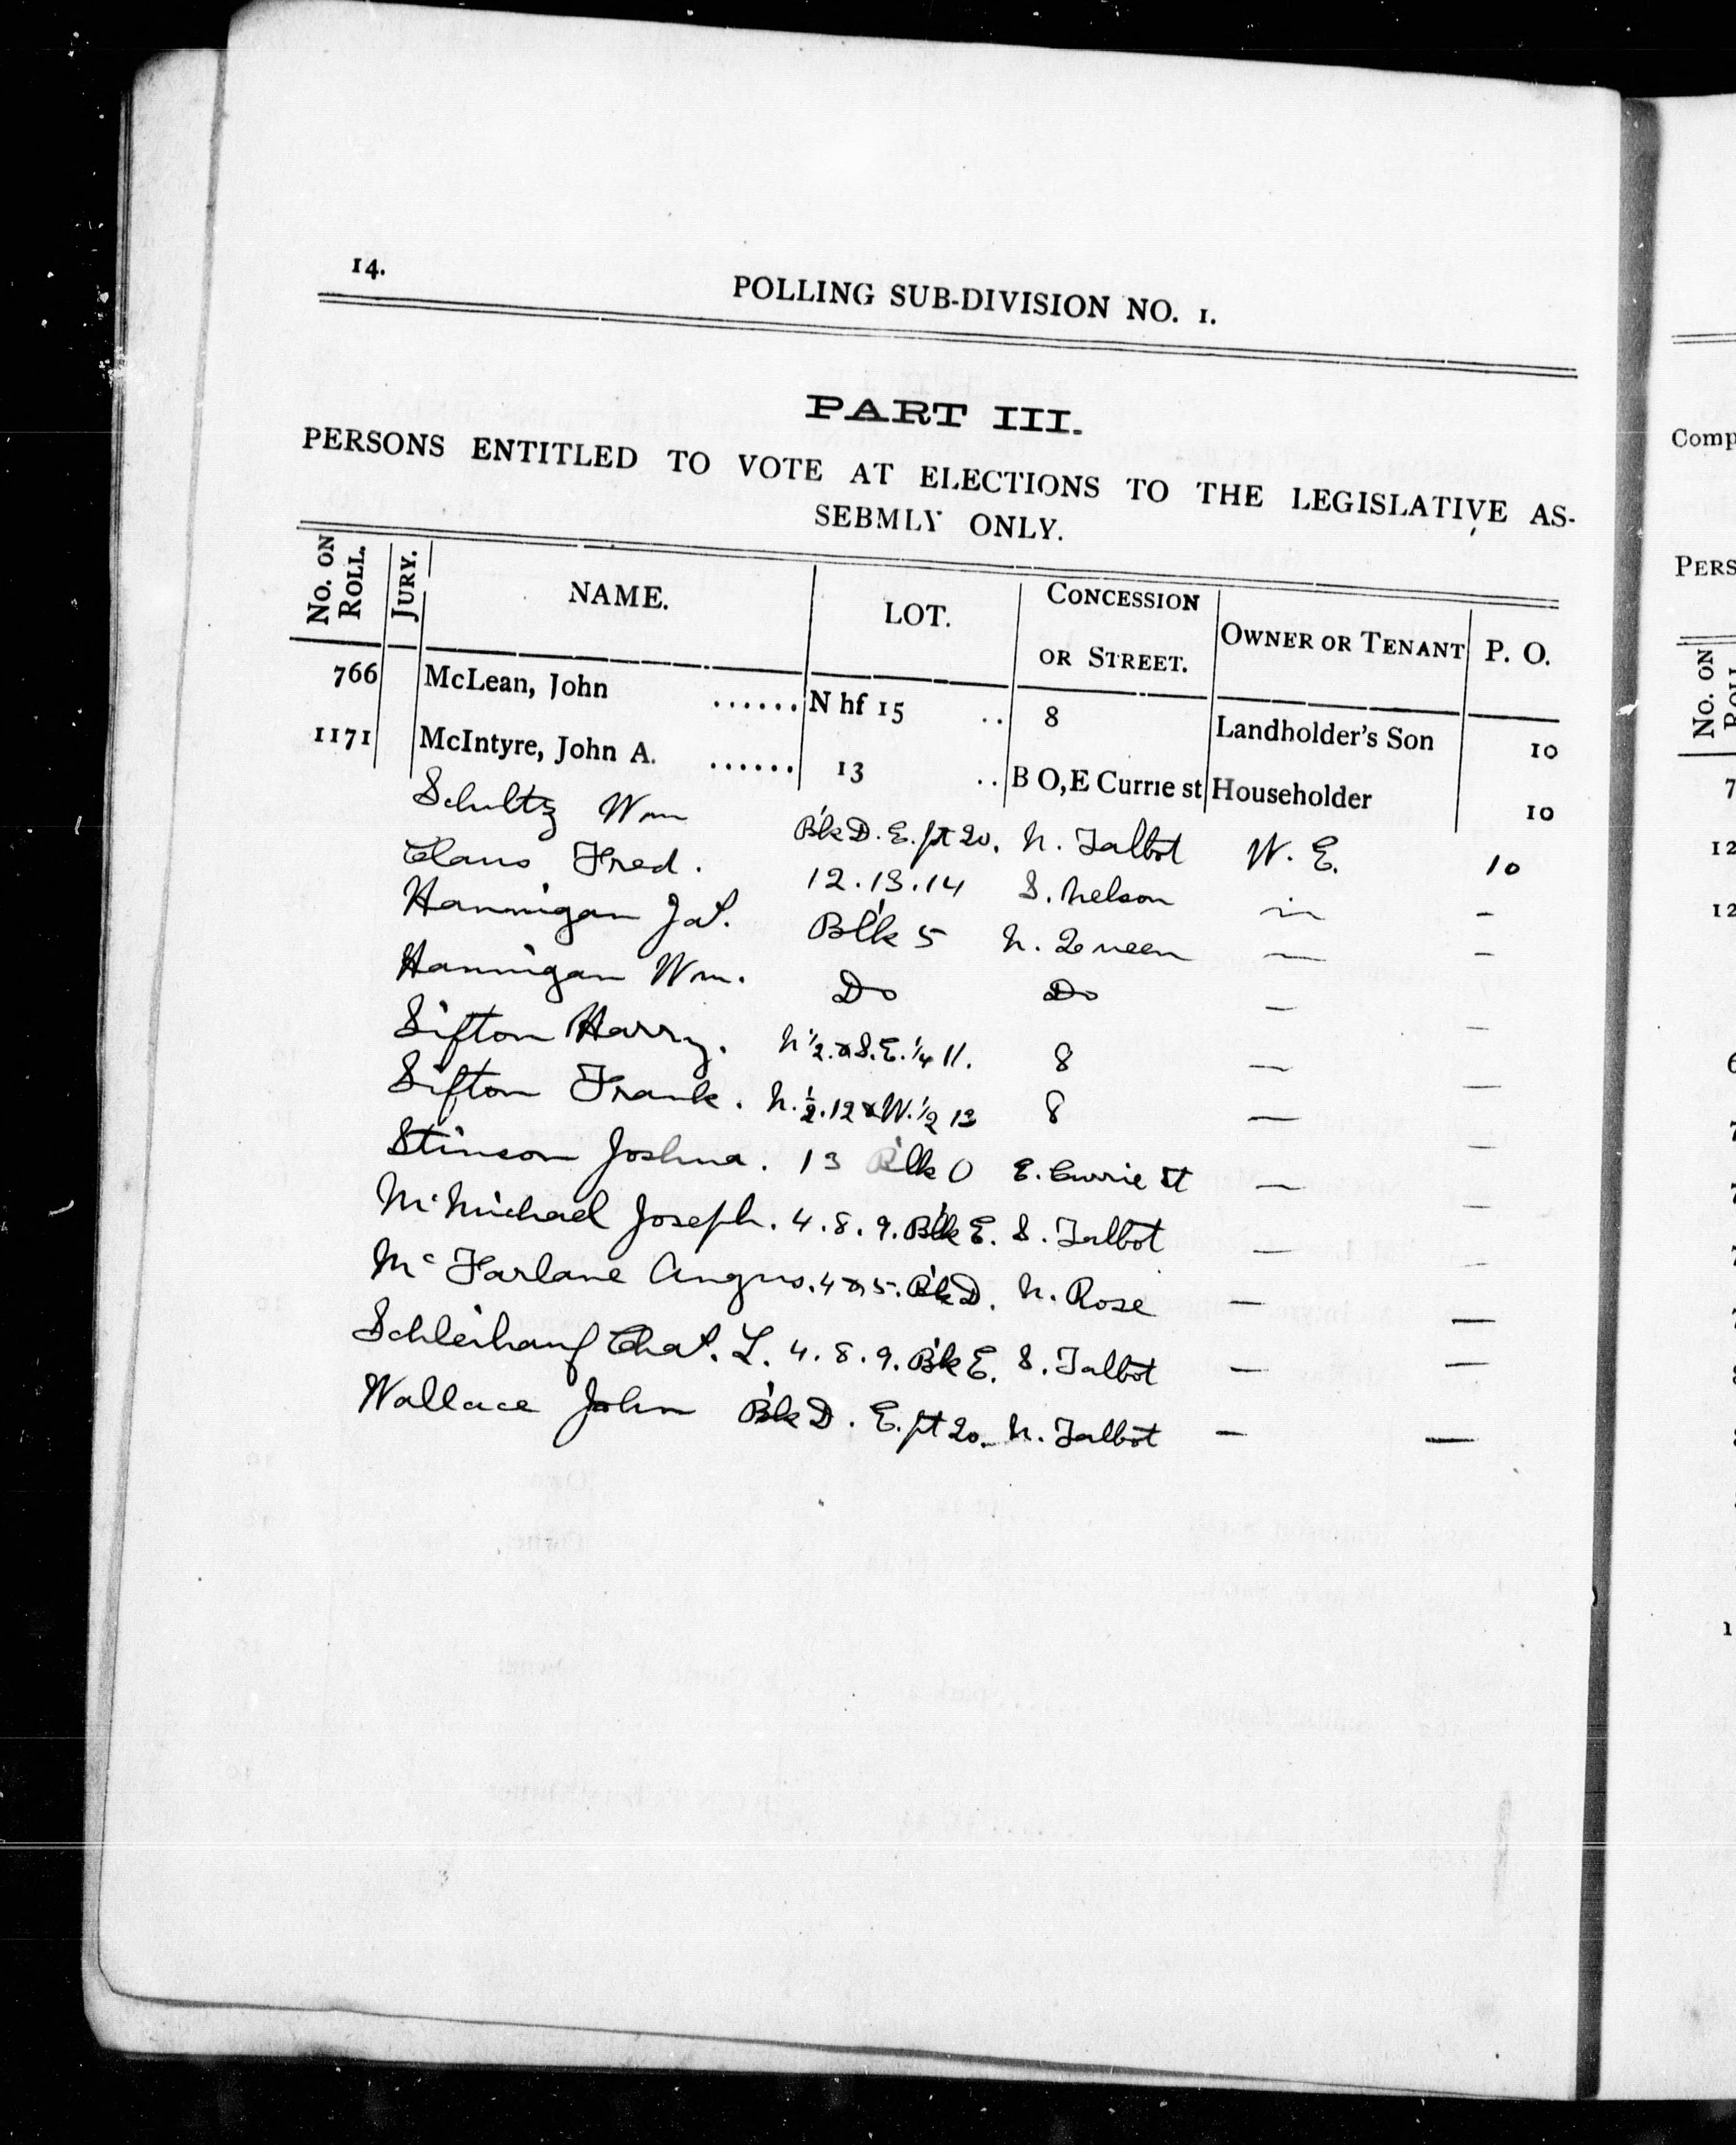 14.
POLLING SUB-DIVISION NO. 1.
PART III.
PERSONS ENTITLED TO VOTE AT ELECTIONS TO THE LEGISLATIVE AS-
SEBMLY ONLY.
No. on Roll. Jury. NAME. LOT. Concession or Street. Owner or Tenant P. O.
766 McLean, John ...... N hf 15 .. 8 Landholder's Son 10
1171 McIntyre, John A. ...... 13 .. B O, E Currie st Householder 10
Schultz Wm Blk D. E. pt 20. N. Talbot W. E. 10
Claus Fred. 12.13.14 S. Nelson — -
Hannigan Jas. Blk 5 N. — -
Hannigan Wm. Do Do — —
Sifton Harry. N 1/2. & S.E. 1/4 11. 8 — —
Sifton Frank. N. 1/2. 12 & W. 1/2 13 8 — —
Stinson Joshua. 13 Blk O E. Currie St — —
McMichael Joseph. 4.8.9. Blk E. S. Talbot — —
McFarlane Angus. 4 & 5. Blk D. N. Rose — —
Schleihauf Chas. L. 4.8.9. Blk E. S. Talbot — —
Wallace John Blk D. E. pt 20. N. Talbot — —
Comp
Pers
No. on
Roll
7
12
12